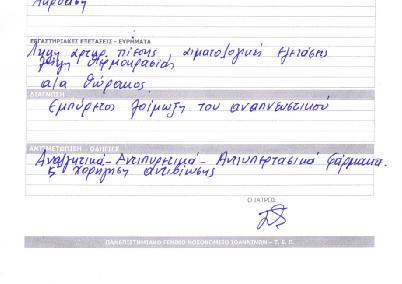 Ακρόαση
ΕΡΓΑΣΤΗΡΙΑΚΕΣ ΕΞΕΤΑΣΕΙΣ - ΕΥΡΗΜΑΤΑ
Λήψη αρτηρ. πίεσης, αιματολογικές εξετάσεις
λήψη θερμοκρασίας
α/α θώρακος
ΔΙΑΓΝΩΣΗ
Εμπύρετος λοίμωξη του αναπνευστικού
ΑΝΤΙΜΕΤΩΠΙΣΗ - ΟΔΗΓΙΕΣ
Αναλγητικά - Αντιπυρετικά - Αντιυπερτασικά φάρμακα.
χορήγηση αντιβίωσης
Ο ΙΑΤΡΟΣ
ΠΑΝΕΠΙΣΤΗΜΙΑΚΟ ΓΕΝΙΚΟ ΝΟΣΟΚΟΜΕΙΟ ΙΩΑΝΝΙΝΩΝ - Τ. Ε. Π.